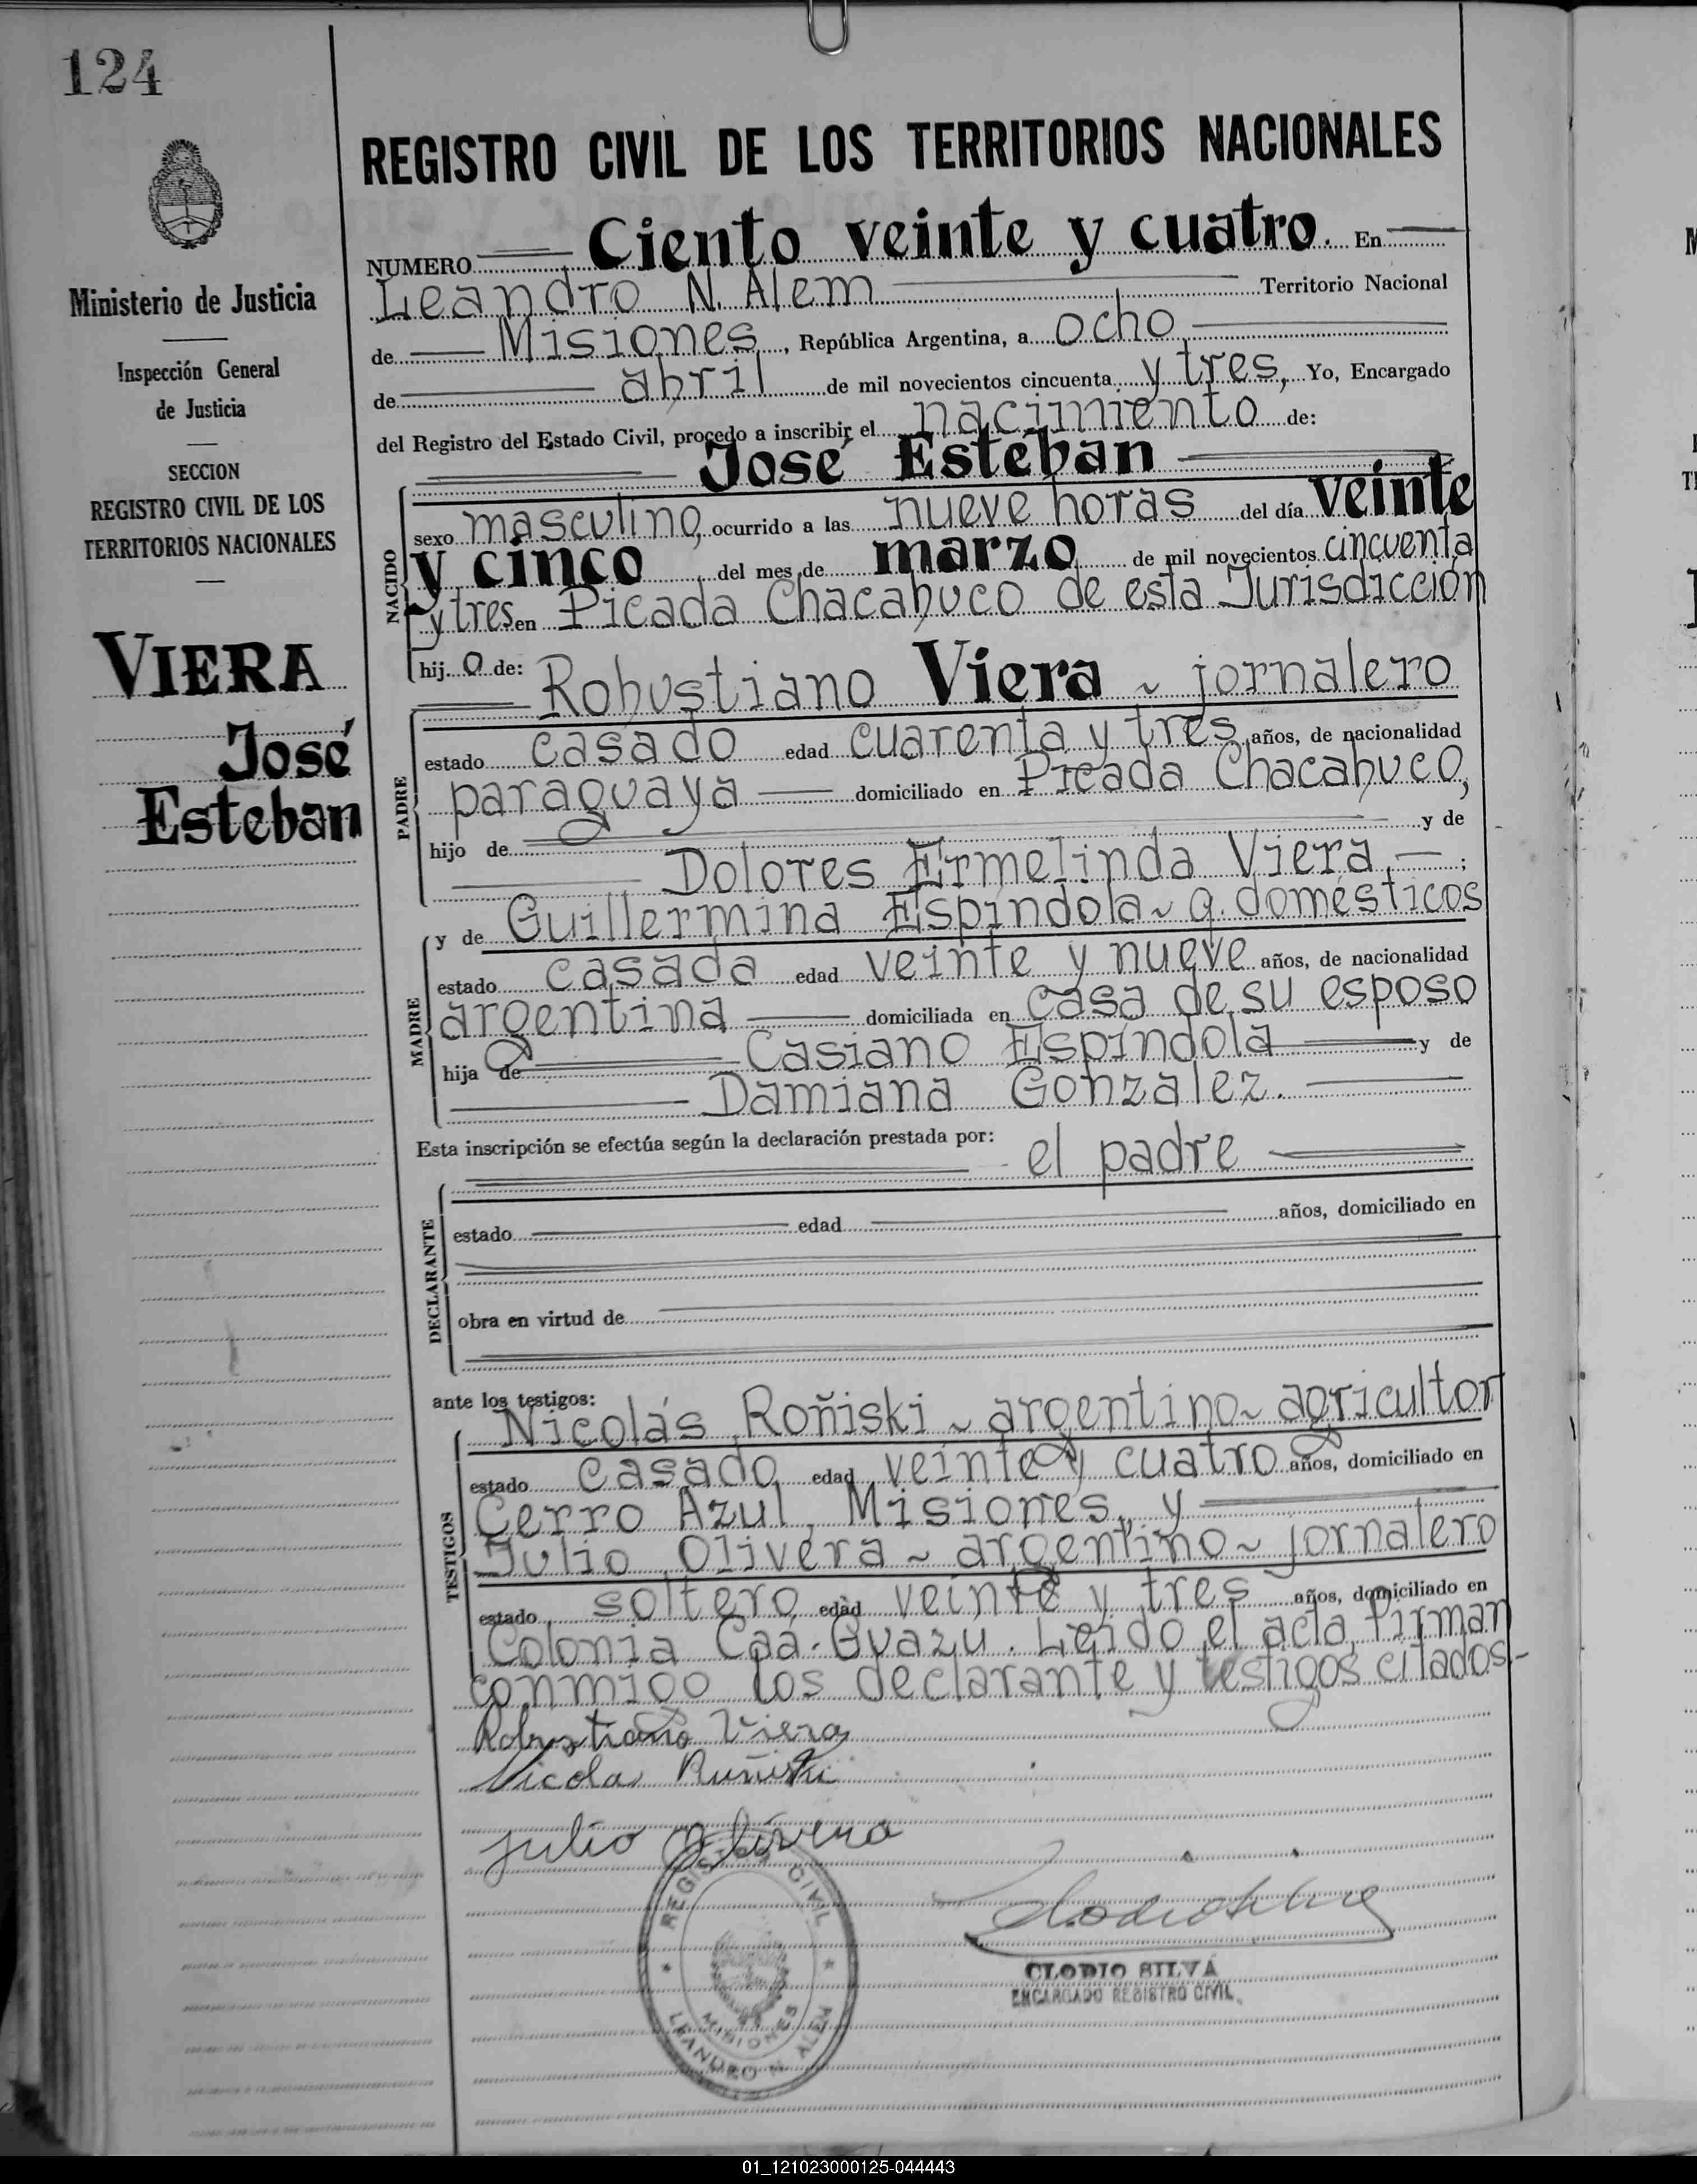 124
REGISTRO CIVIL DE LOS TERRITORIOS NACIONALES
NUMERO Ciento veinte y cuatro. En
Leandro N. Alem Territorio Nacional
de Misiones, República Argentina, a ocho
de abril de mil novecientos cincuenta y tres, Yo, Encargado
del Registro del Estado Civil, procedo a inscribir el nacimiento de:
José Esteban
NACIDO
sexo masculino, ocurrido a las nueve horas del día veinte
y cinco del mes de marzo de mil novecientos cincuenta
y tres en Picada Chacabuco de esta Jurisdicción
hij o de:
Robustiano Viera ~ jornalero
PADRE
estado casado edad cuarenta y tres años, de nacionalidad
paraguaya domiciliado en Picada Chacabuco,
hijo de y de
Dolores Ermelinda Viera ;
y de Guillermina Espíndola ~ q. domésticos
MADRE
estado casada edad veinte y nueve años, de nacionalidad
argentina domiciliada en casa de su esposo
hija de Casiano Espíndola y de
Damiana Gonzalez.
Esta inscripción se efectúa según la declaración prestada por:
el padre
DECLARANTE
estado edad años, domiciliado en
obra en virtud de
ante los testigos:
Nicolás Roñiski ~ argentino ~ agricultor
TESTIGOS
estado casado edad veinte y cuatro años, domiciliado en
Cerro Azul, Misiones, y
Julio Olivera ~ argentino ~ jornalero
estado soltero edad veinte y tres años, domiciliado en
Colonia Caa-Guazu. Leido el acta, firman
conmigo los declarante y testigos citados.-
Robustiano Viera
Nicolas Ruñiski
Julio Olivera
REGISTRO CIVIL
MISIONES
LEANDRO N. ALEM
CLODIO SILVA
ENCARGADO REGISTRO CIVIL
Ministerio de Justicia
Inspección General
de Justicia
SECCION
REGISTRO CIVIL DE LOS
TERRITORIOS NACIONALES
VIERA
José
Esteban
01_121023000125-044443